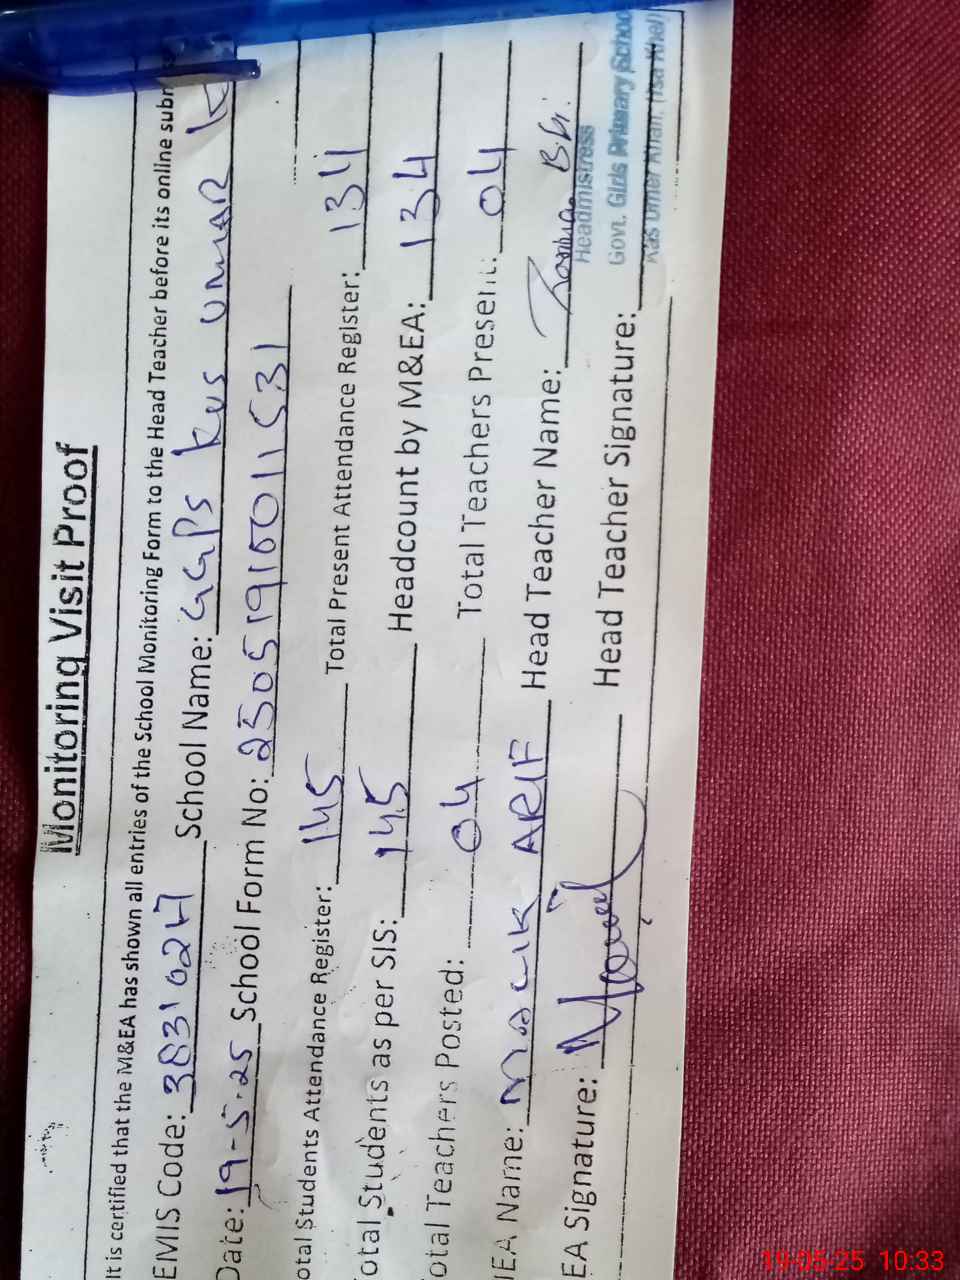 Monitoring Visit Proof
It is certified that the M&EA has shown all entries of the School Monitoring Form to the Head Teacher before its online subm
EMIS Code: 38310247 School Name: GGPS Kus UMAR K
Date: 19-5-25 School Form No: 25051910011531
otal Students Attendance Register: 145 Total Present Attendance Register: 134
otal Students as per SIS: 145 Headcount by M&EA: 134
otal Teachers Posted: 04 Total Teachers Present: 04
EA Name: MALIK ARIF Head Teacher Name: Bibi
EA Signature: Head Teacher Signature:
Headmistress
Govt. Girls Primary Schoo
Kas Umer Khan, (Isa Khel)
19-05-25 10:33